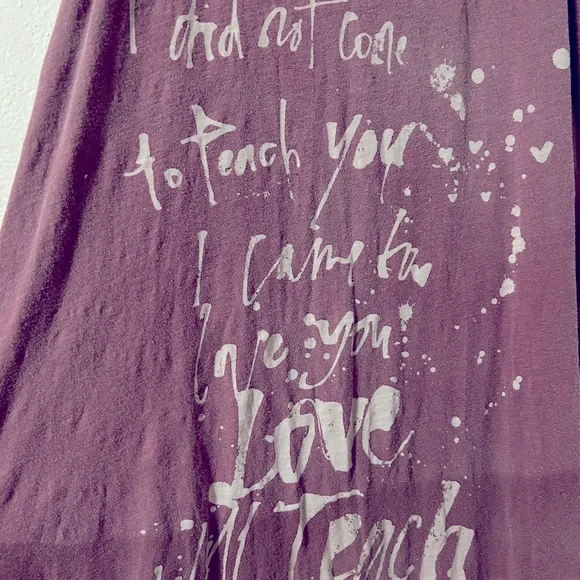 I did not come
to teach you
I came to
love you
Love
will Teach